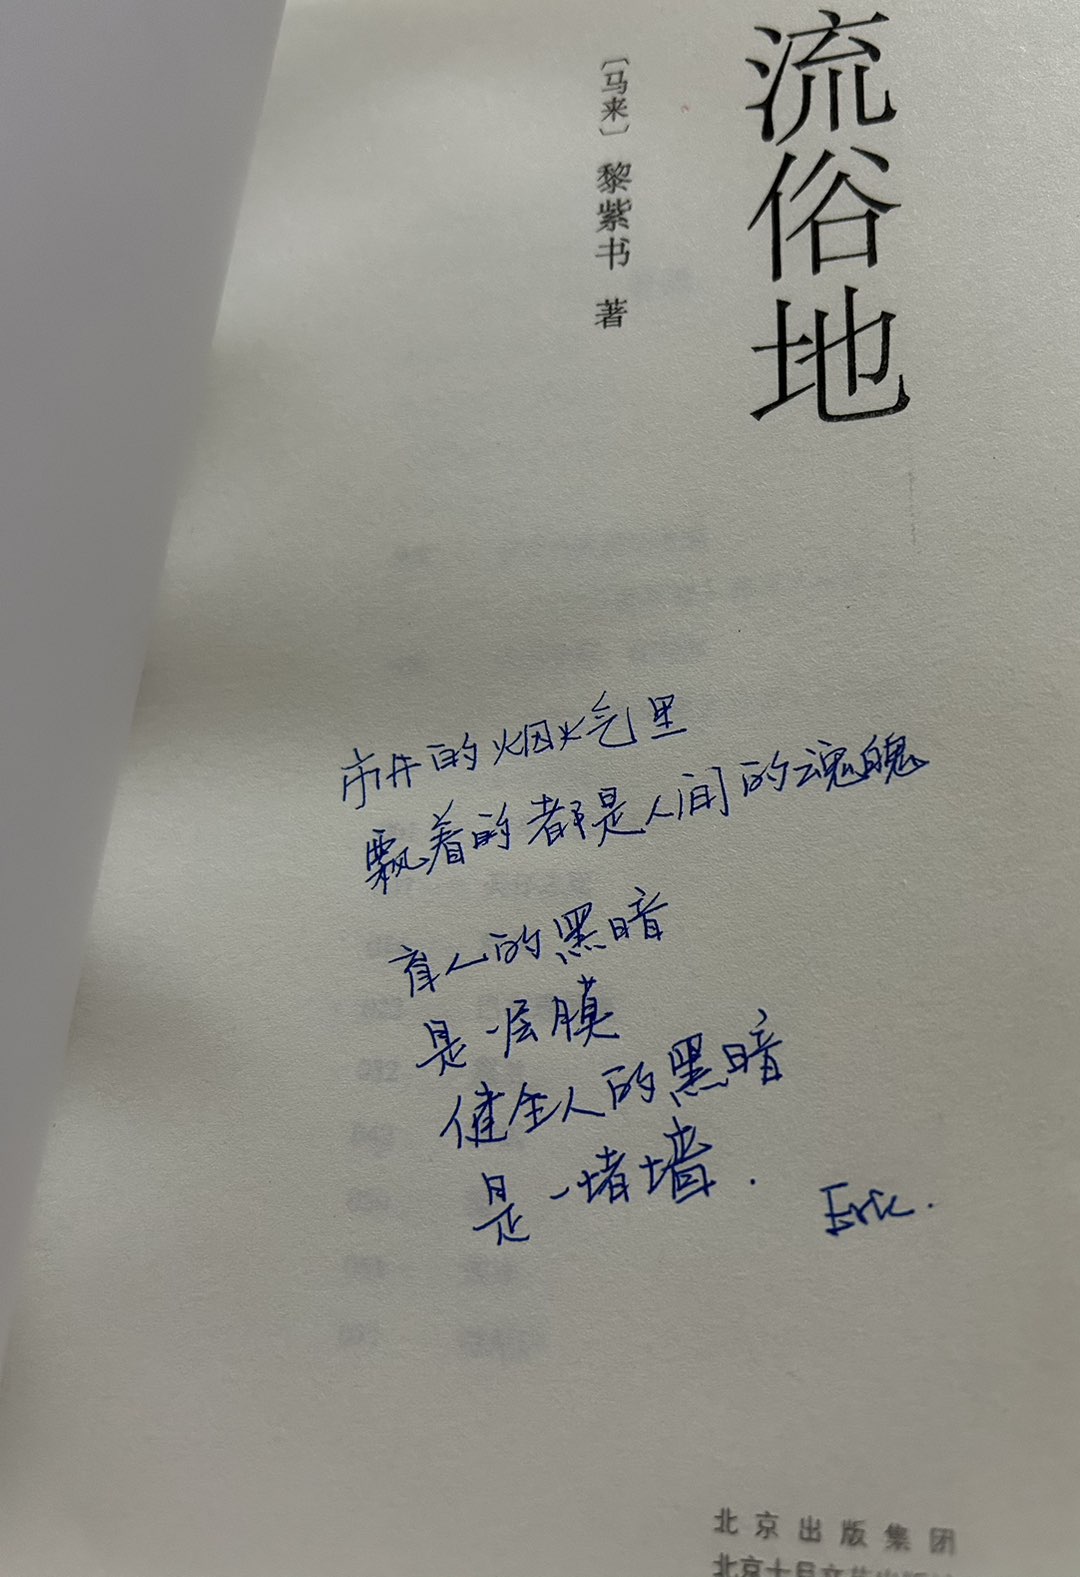 流俗地
〔马来〕 黎紫书 著
市井的烟火气里
飘着的都是人间的魂魄
盲人的黑暗
是一层膜
健全人的黑暗
是一堵墙.
Eric.
北京出版集团
北京十月文艺出版社